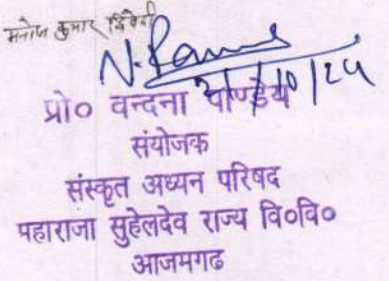 मनोज कुमार द्विवेदी
प्रो० वन्दना पाण्डेय
संयोजक
संस्कृत अध्यन परिषद
महाराजा सुहेलदेव राज्य वि०वि०
आजमगढ